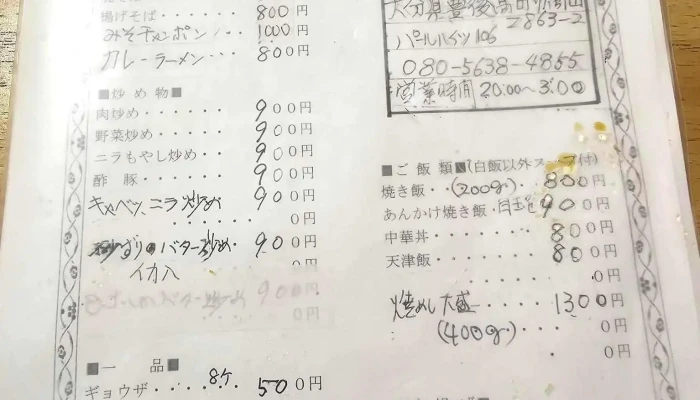 揚げそば・・・・・ 800円
みそチャンポン・・・ 1000円
カレーラーメン・・・ 800円
■炒め物■
肉炒め・・・・・・ 900円
野菜炒め・・・・・ 900円
ニラもやし炒め・・ 900円
酢豚・・・・・・・ 900円
キャベツ、ニラ炒め 900円
・・・・・・・ 0円
バター炒め・ 900円
イカ入
バター炒め 900円
・・・・・・・ 0円
■一品■
ギョウザ・・・・8ケ・ 500円
大分県豊後高田
2863-2
パールハイツ106
080-5638-4855
営業時間 20:00~3:00
■ご飯類■(白飯以外スープ付)
焼き飯・・(200g)・ 800円
あんかけ焼き飯・ 900円
中華丼・・・・・・ 800円
天津飯・・・・・・ 800円
焼めし大盛・・・・ 1300円
(400g)・・・・・ 0円
・・・・・・・ 0円